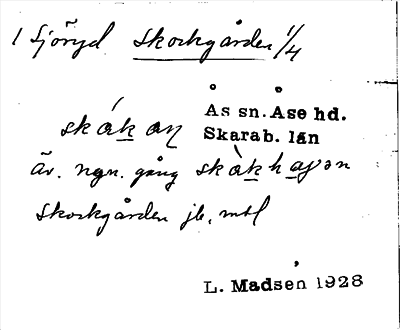 1 Sjöryd Skorkgården 1/4
Ås sn. Åse hd.
skåkaɳ Skarab. län
Äv. ngn. gång skàkhaɡən
Skorkgården jb, mtl
L. Madsén 1928